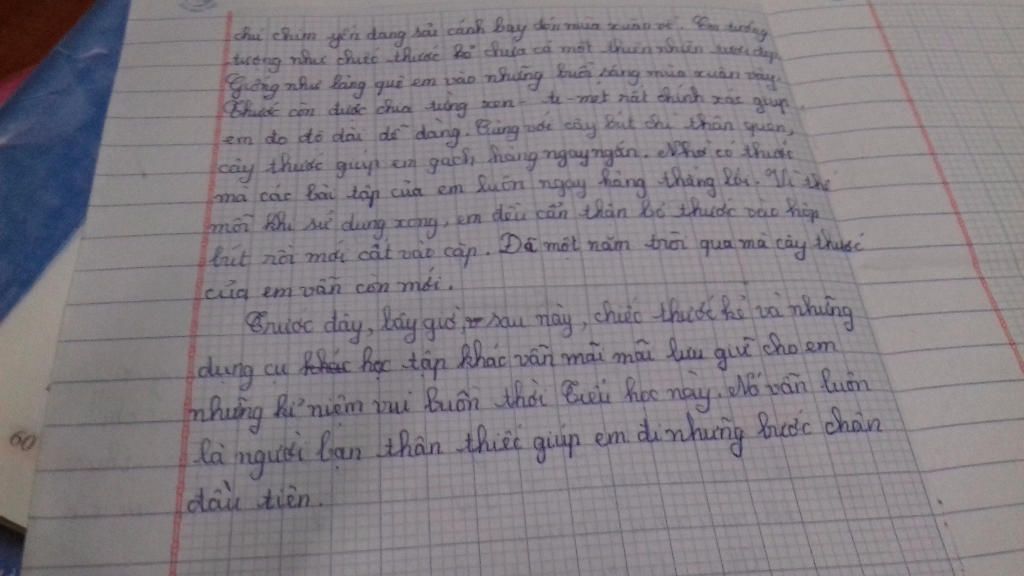 chú chim yến đang sải cánh bay đón mùa xuân về. Em tưởng
tượng như chiếc thước kẻ chứa cả một thiên nhiên tươi đẹp
Giống như làng quê em vào những buổi sáng mùa xuân vậy.
Thước còn được chia từng xen-ti-mét rất chính xác giúp
em đo độ dài dễ dàng. Cùng với cây bút chì thân quen,
cây thước giúp em gạch, hàng ngay ngắn. Nhờ có thước
mà các bài tập của em luôn ngay hàng thẳng lối. Vì thế
mỗi khi sử dụng xong, em đều cẩn thận bỏ thước vào hộp
bút rồi mới cất vào cặp. Đã một năm trôi qua mà cây thước
của em vẫn còn mới.
Trước đây, bây giờ, sau này, chiếc thước kẻ và những
dụng cụ khác học tập khác vẫn mãi mãi lưu giữ cho em
những kỉ niệm vui buồn thời Tiểu học này. Nó vẫn luôn
là người bạn thân thiết giúp em đi những bước chân
đầu tiên.
60